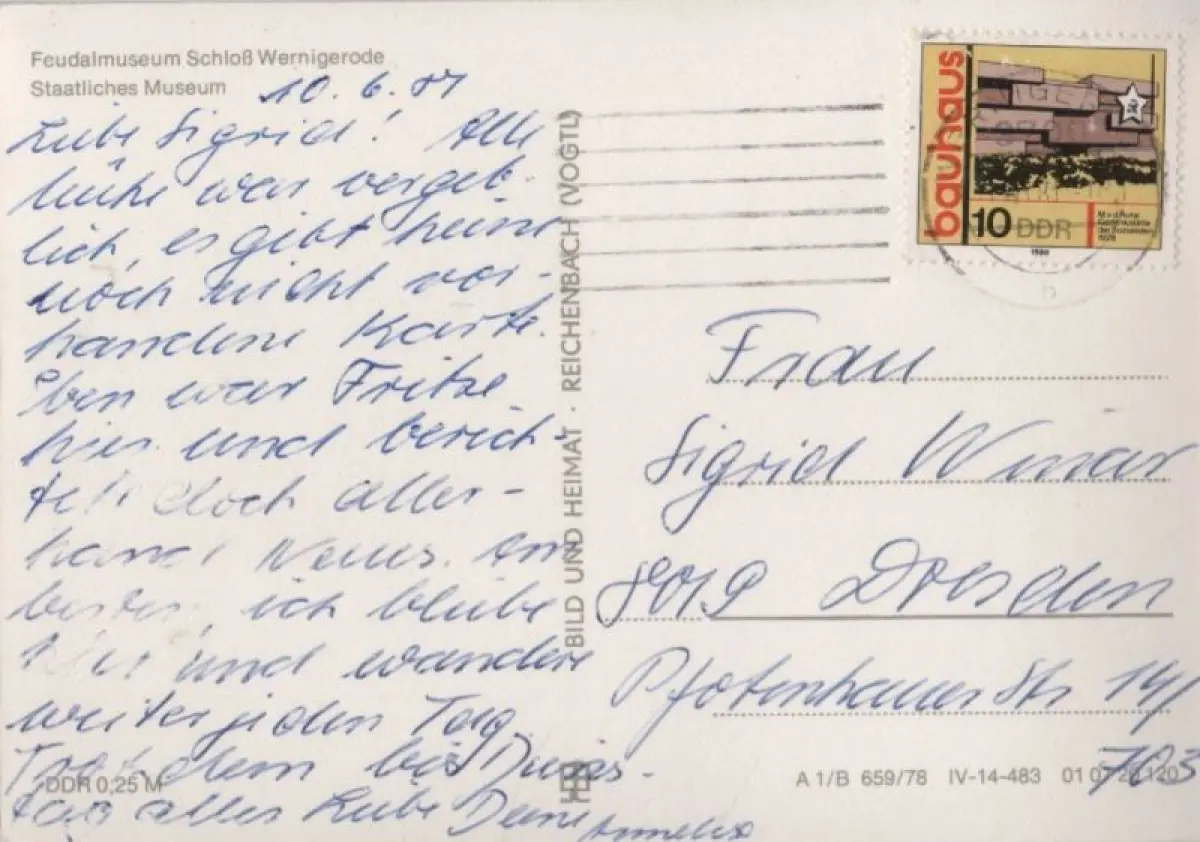 Feudalmuseum Schloß Wernigerode
Staatliches Museum
10. 6. 81
Liebe Sigrid! Alle
Mühe war vergeb-
lich, es gibt keine
noch nicht vor-
handene Karte.
Eben war Fritze
hier und berich-
tete doch aller-
hand Neues. Am
besten, ich bleibe
hier und wandere
weiter jeden Tag
Trotzdem bis Diens-
tag alles Liebe Deine
DDR 0,25 M
BILD UND HEIMAT · REICHENBACH (VOGTL)
bauhaus
10 DDR
1980
Frau
Sigrid
8019 Dresden
Pfotenhauerstr 14/
703
A 1/B 659/78 IV-14-483 01 07